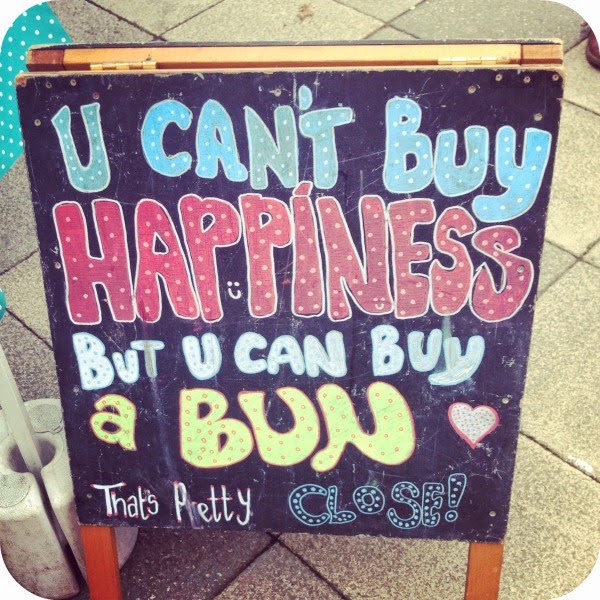 U CAN'T BUY
HAPPINESS
BUT U CAN BUY
a BUN
That's Pretty CLOSE!